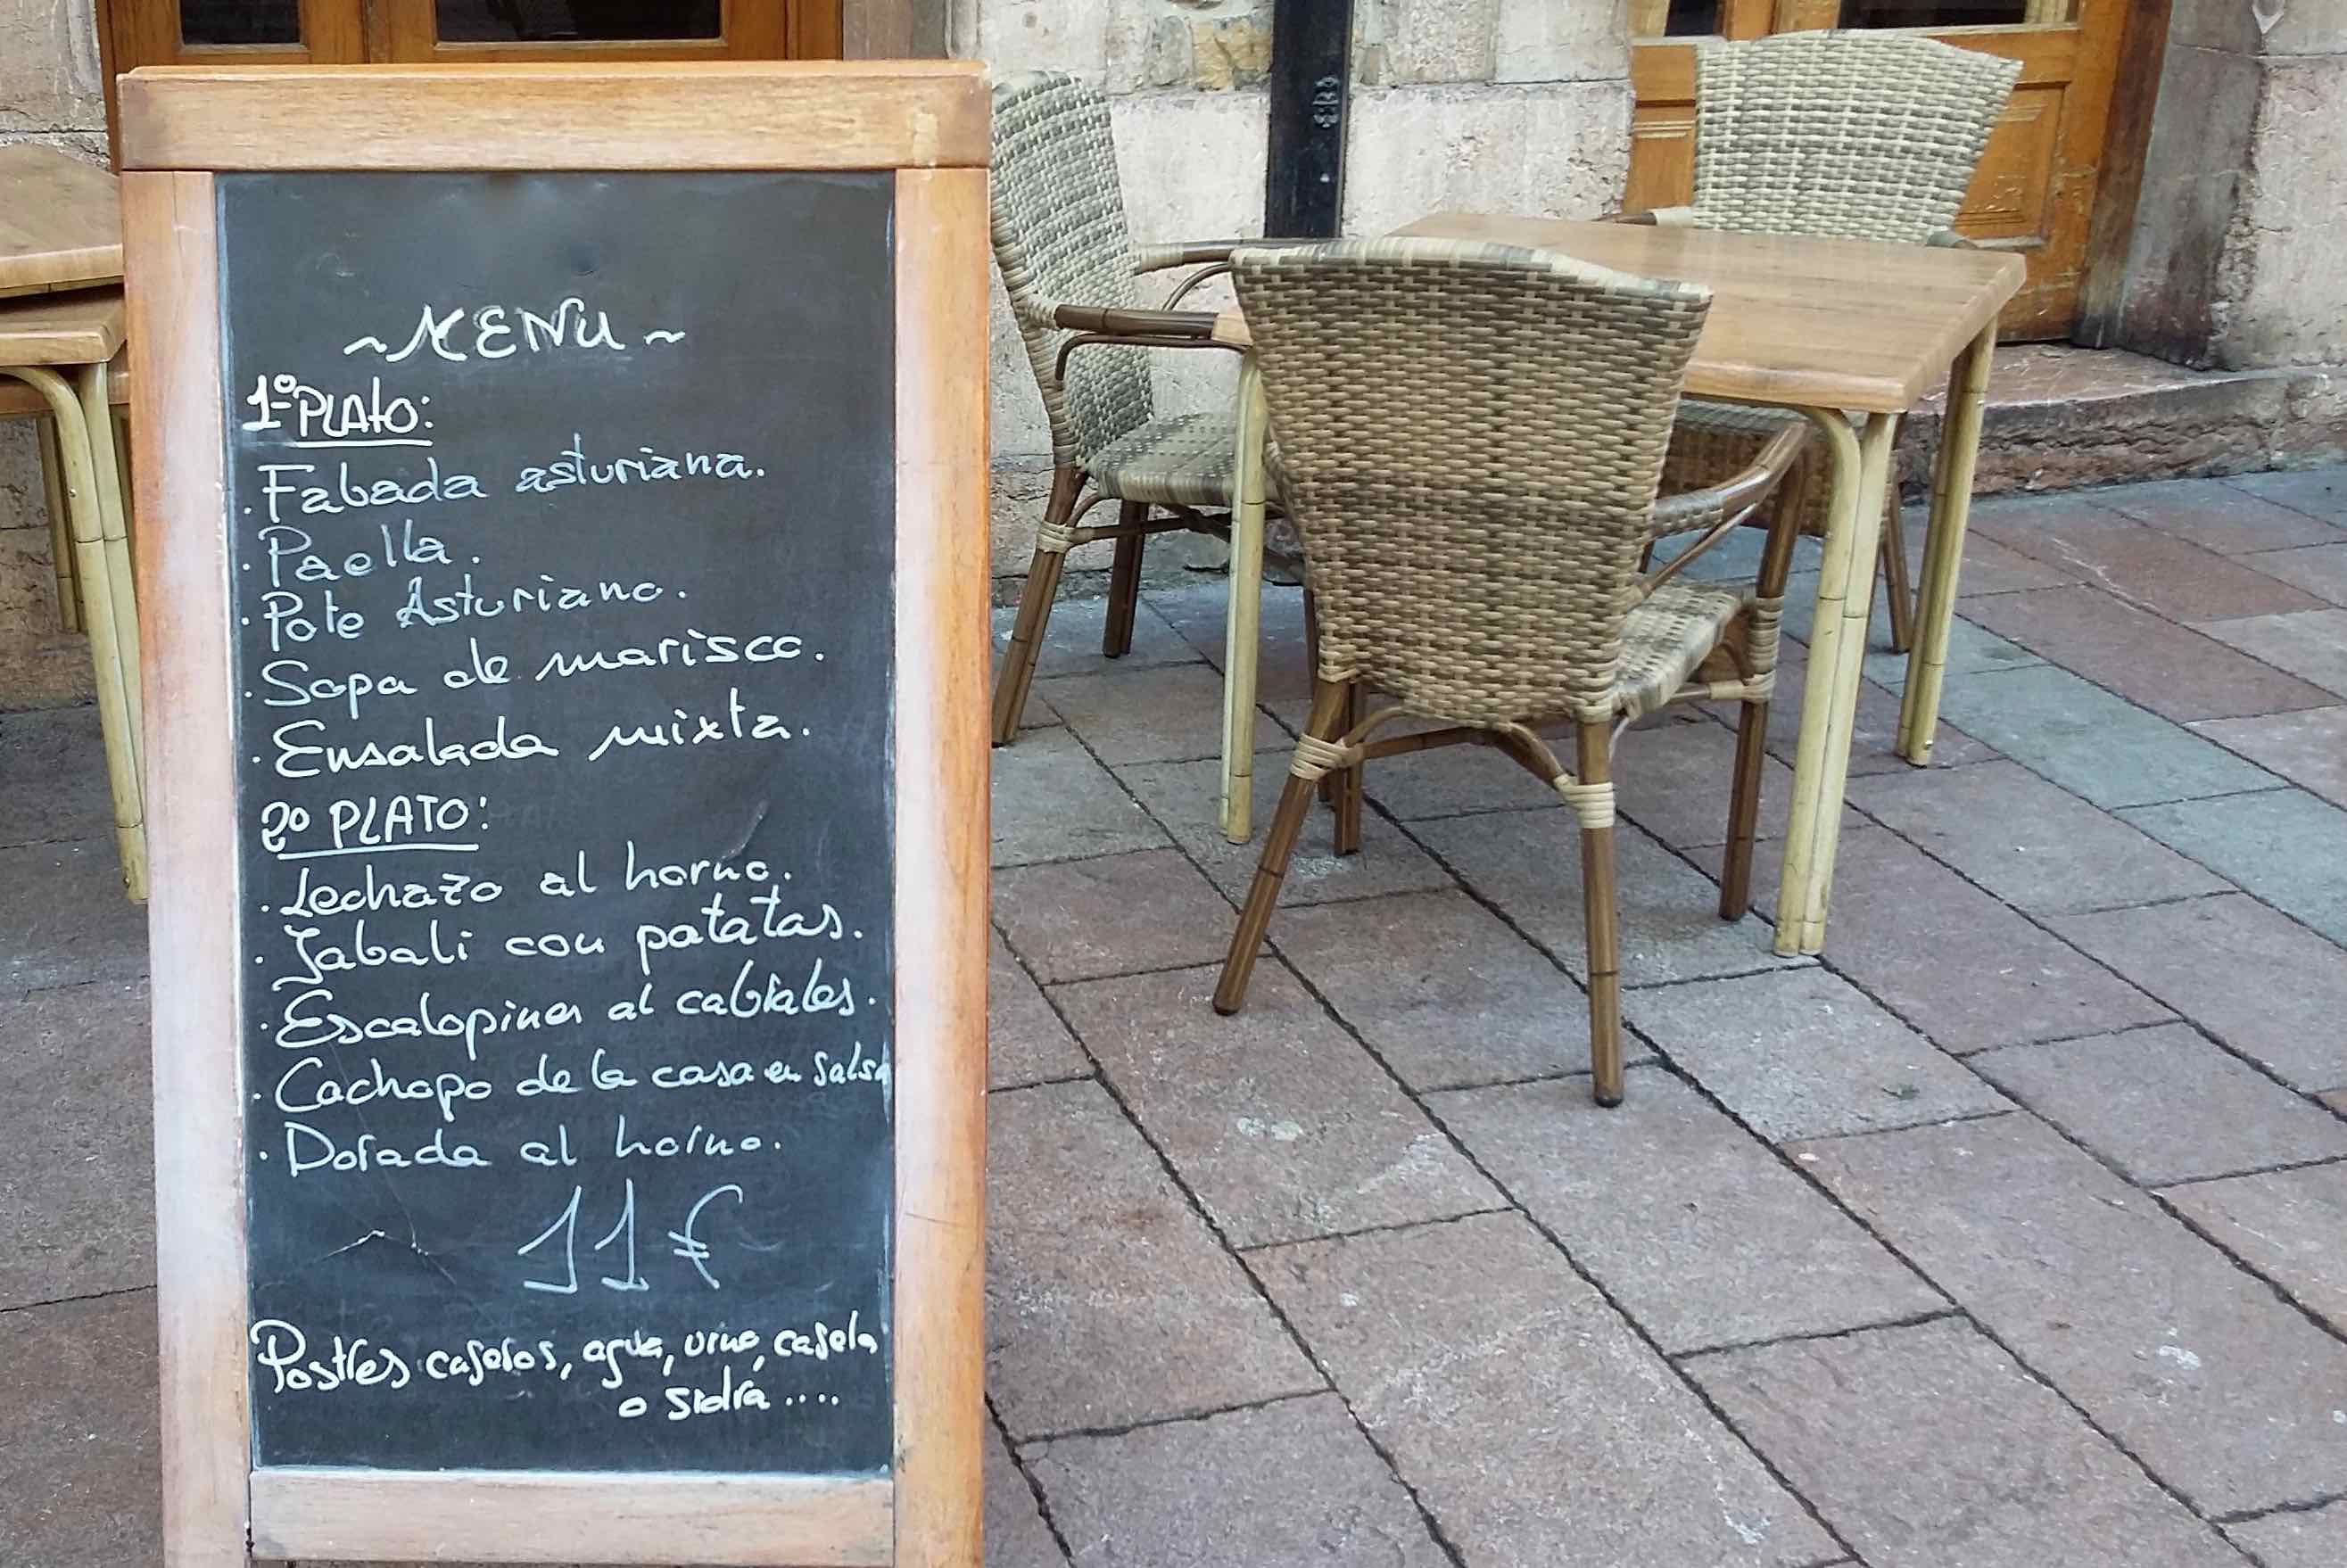 ~MENU~
1º PLATO:
. Fabada asturiana.
. Paella.
. Pote Asturiano.
. Sopa de marisco.
. Ensalada mixta.
2º PLATO:
. Lechazo al horno.
. Jabali con patatas.
. Escalopines al cabrales.
. Cachopo de la casa en salsa
. Dorada al horno.
11€
Postres caseros, agua, vino, casera
o sidra ....